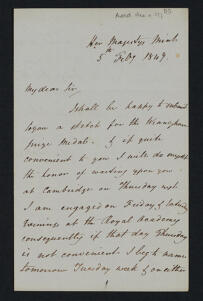 Her Majestys Mint
5th Feby 1849.
My dear Sir,
I shall be happy to submit
to you a sketch for the
prize Medal. If quite
convenient to you I will do myself
the honor of waiting upon you
at Cambridge on Thursday next
I am engaged on Friday & Saturday
Evening at the Royal Academy
consequently if that day Thursday
is not convenient I beg to name
tomorrow Tuesday week or any other